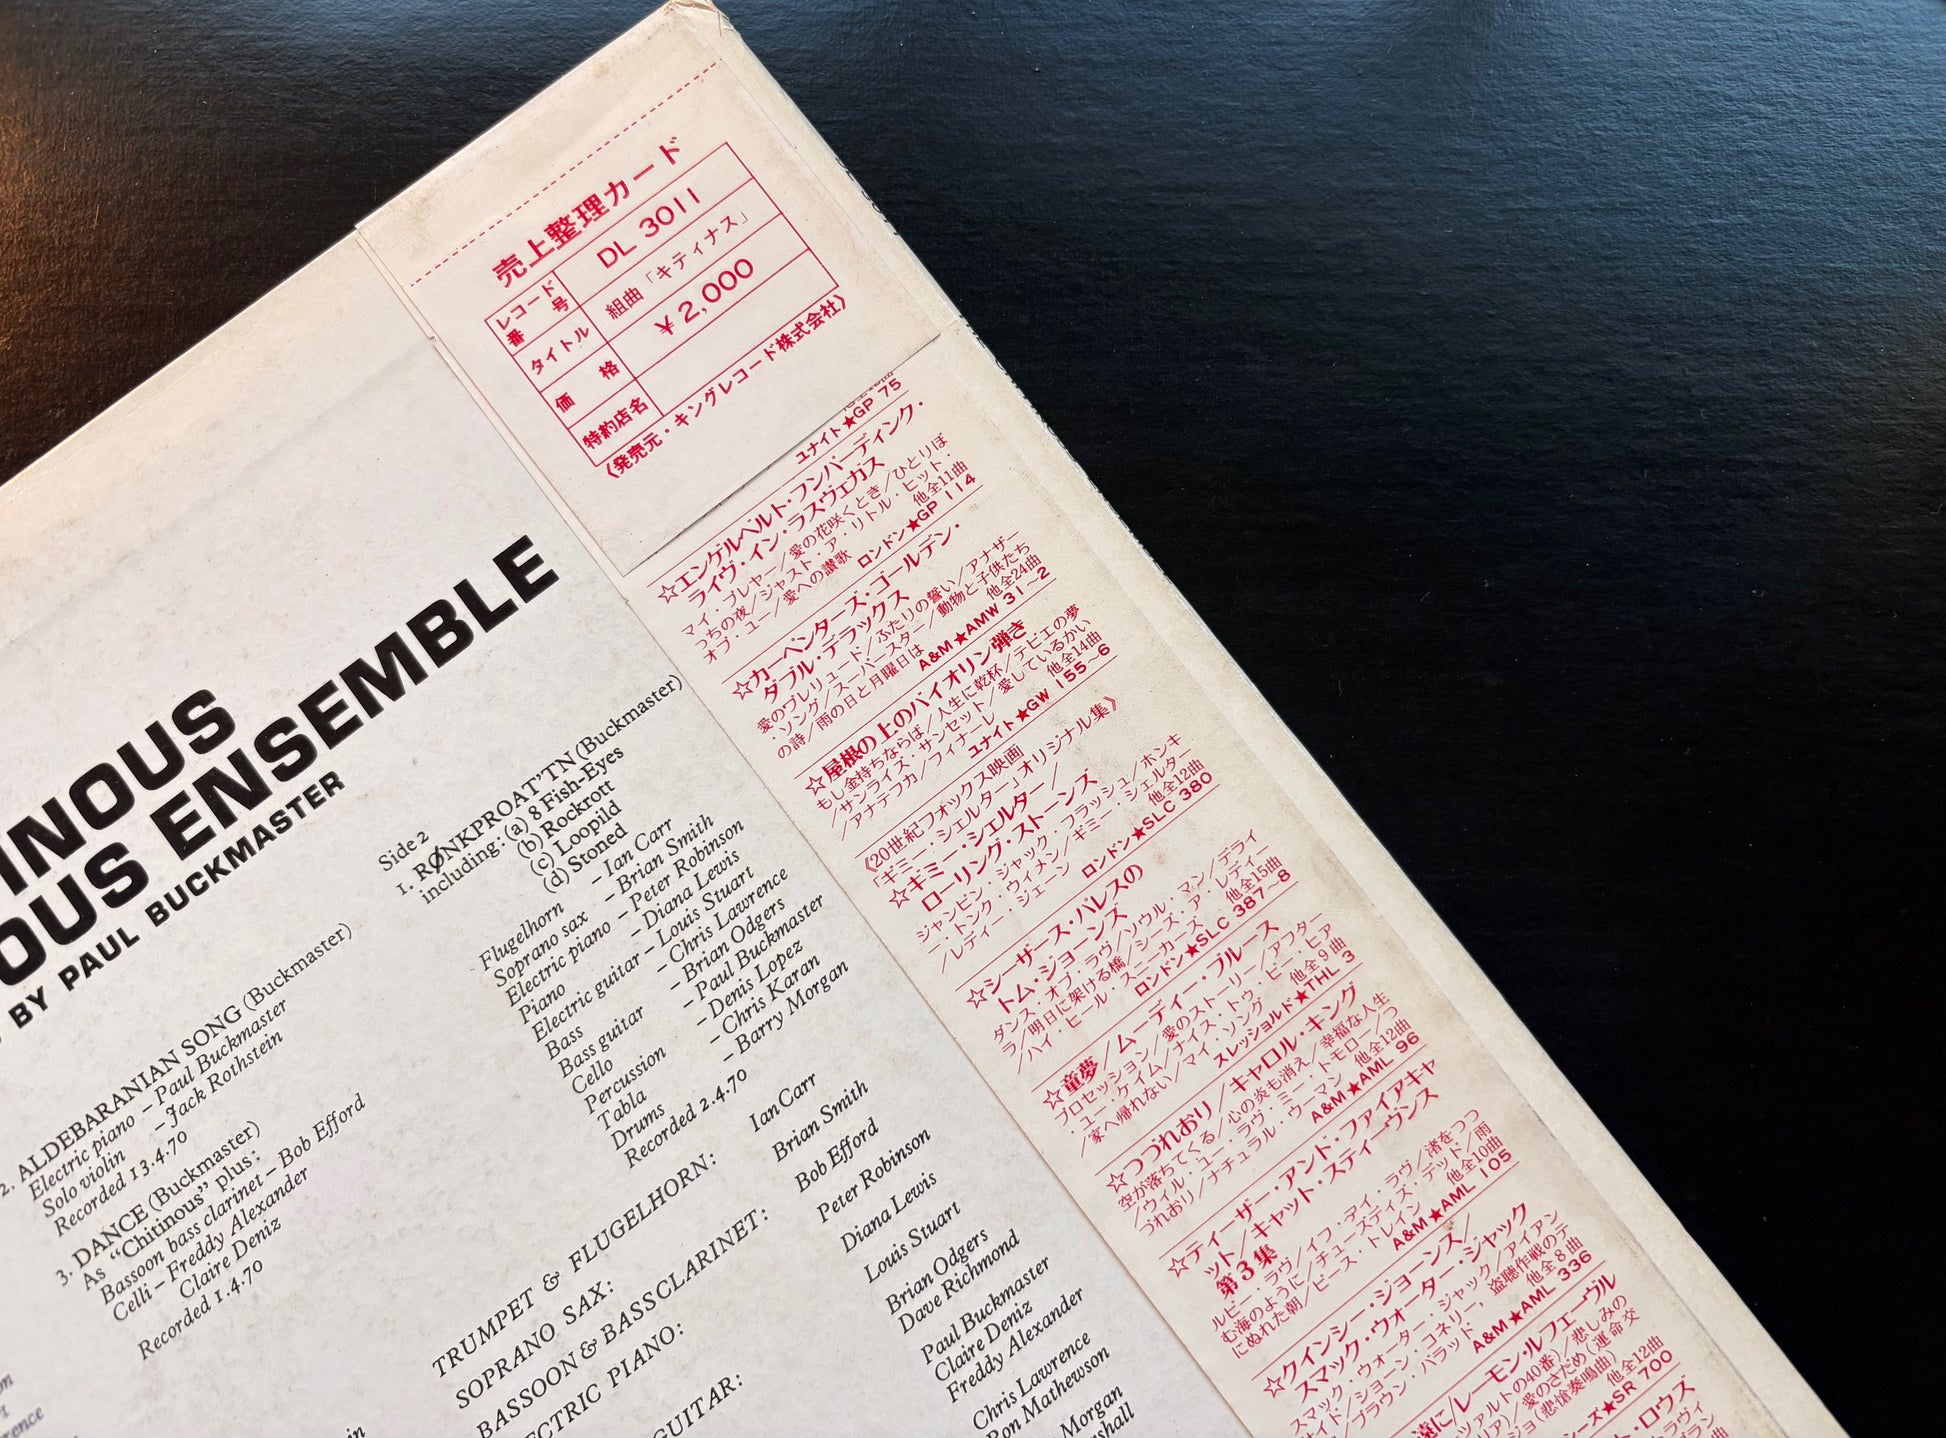 売上整理カード
レコード番号
DL 3011
タイトル
組曲「キティナス」
価格
¥2,000
特約店名
《発売元・キングレコード株式会社》
ユナイト★GP 75
☆エンゲルベルト・フンパーディンク・
ライヴ・イン・ラスヴェガス
マイ・プレヤー/愛の花咲くとき/ひとりぼ
っちの夜/ジャスト・ア・リトル・ヒット・
オブ・ユー/愛への讃歌 他全11曲
ロンドン★GP 114
☆カーペンターズ・ゴールデン・
ダブル・デラックス
愛のプレリュード/ふたりの誓い/アナザー
・ソング/スーパースター/動物と子供たち
の詩/雨の日と月曜日は 他全24曲
A&M★AMW 31~2
☆屋根の上のバイオリン弾き
もし金持ちならば/人生に乾杯/テビエの夢
/サンライズ・サンセット/愛しているかい
/アナテフカ/フィナーレ 他全14曲
ユナイト★GW 155~6
《20世紀フォックス映画
「ギミー・シェルター」オリジナル集》
☆ギミー・シェルター/
ローリング・ストーンズ
ジャンピン・ジャック・フラッシュ/ホンキ
ー・トンク・ウィメン/ギミー・シェルター
/レディー・ジェーン 他全12曲
ロンドン★SLC 380
☆シーザース・パレスの
トム・ジョーンズ
ダンス・オブ・ラヴ/ソウル・マン/デライ
ラ/明日に架ける橋/シーズ・ア・レディー
/ハイ・ヒール・スニーカーズ 他全15曲
ロンドン★SLC 387~8
☆童夢/ムーディー・ブルース
プロセッション/愛のストーリー/アフター
・ユー・ケイム/ナイス・トゥ・ビー・ヒア
/家へ帰れない/マイ・ソング 他全9曲
スレッショルド★THL 3
☆つづれおり/キャロル・キング
空が落ちてくる/心の炎も消え/幸福な人生
/ウィル・ユー・ラヴ・ミー・トモロー/つ
づれおり/ナチュラル・ウーマン 他全12曲
A&M★AML 96
☆ティーザー・アンド・ファイアキャ
ット/キャット・スティーヴンス
第3集
ルビー・ラヴ/イフ・アイ・ラヴ/渚をつつ
む海のように/チューズデイズ・デッド/雨
にぬれた朝/ピース・トレイン 他全10曲
A&M★AML 105
☆クインシー・ジョーンズ/
スマック・ウォーター・ジャック
スマック・ウォーター・ジャック/アイアン
サイド/ショーン・コネリー,盗聴作戦のテ
/ブラウン・バラッド 他全8曲
A&M★AML 336
遠に/レーモン・ルフェーヴル
ツァルトの40番)/悲しみの
リア)/愛のさだめ(運命交
ジョ(悲愴奏鳴曲) 他全12曲
シーズ★SR 700
ト・ロウズ
INOUS
OUS ENSEMBLE
BY PAUL BUCKMASTER
2. ALDEBARANIAN SONG (Buckmaster)
Electric piano – Paul Buckmaster
Solo violin – Jack Rothstein
Recorded 13.4.70
3. DANCE (Buckmaster)
As “Chitinous” plus:
Bassoon bass clarinet – Bob Efford
Celli – Freddy Alexander
Claire Deniz
Recorded 1.4.70
Side 2
1. RØNKPROAT’TN (Buckmaster)
including: (a) 8 Fish-Eyes
(b) Rockrott
(c) Loopild
(d) Stoned
Flugelhorn – Ian Carr
Soprano sax – Brian Smith
Electric piano – Peter Robinson
Piano – Diana Lewis
Electric guitar – Louis Stuart
Bass – Chris Lawrence
Bass guitar – Brian Odgers
Cello – Paul Buckmaster
Percussion – Denis Lopez
Tabla – Chris Karan
Drums – Barry Morgan
Recorded 2.4.70
TRUMPET & FLUGELHORN: Ian Carr
SOPRANO SAX: Brian Smith
BASSOON & BASSCLARINET: Bob Efford
ECTRIC PIANO: Peter Robinson
Diana Lewis
GUITAR: Louis Stuart
Brian Odgers
Dave Richmond
Paul Buckmaster
Claire Deniz
Freddy Alexander
Chris Lawrence
Ron Mathewson
Morgan